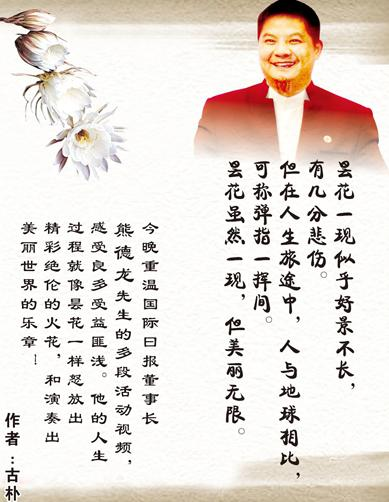 昙花一现似乎好景不长，
有几分悲伤。
但在人生旅途中，人与地球相比，
可称弹指一挥间。
昙花虽然一现，但美丽无限。
今晚重温国际日报董事长
熊德龙先生的多段活动视频，
感受良多受益匪浅。他的人生
过程就像昙花一样怒放出
精彩绝伦的火花，和演奏出
美丽世界的乐章！
作者：古朴